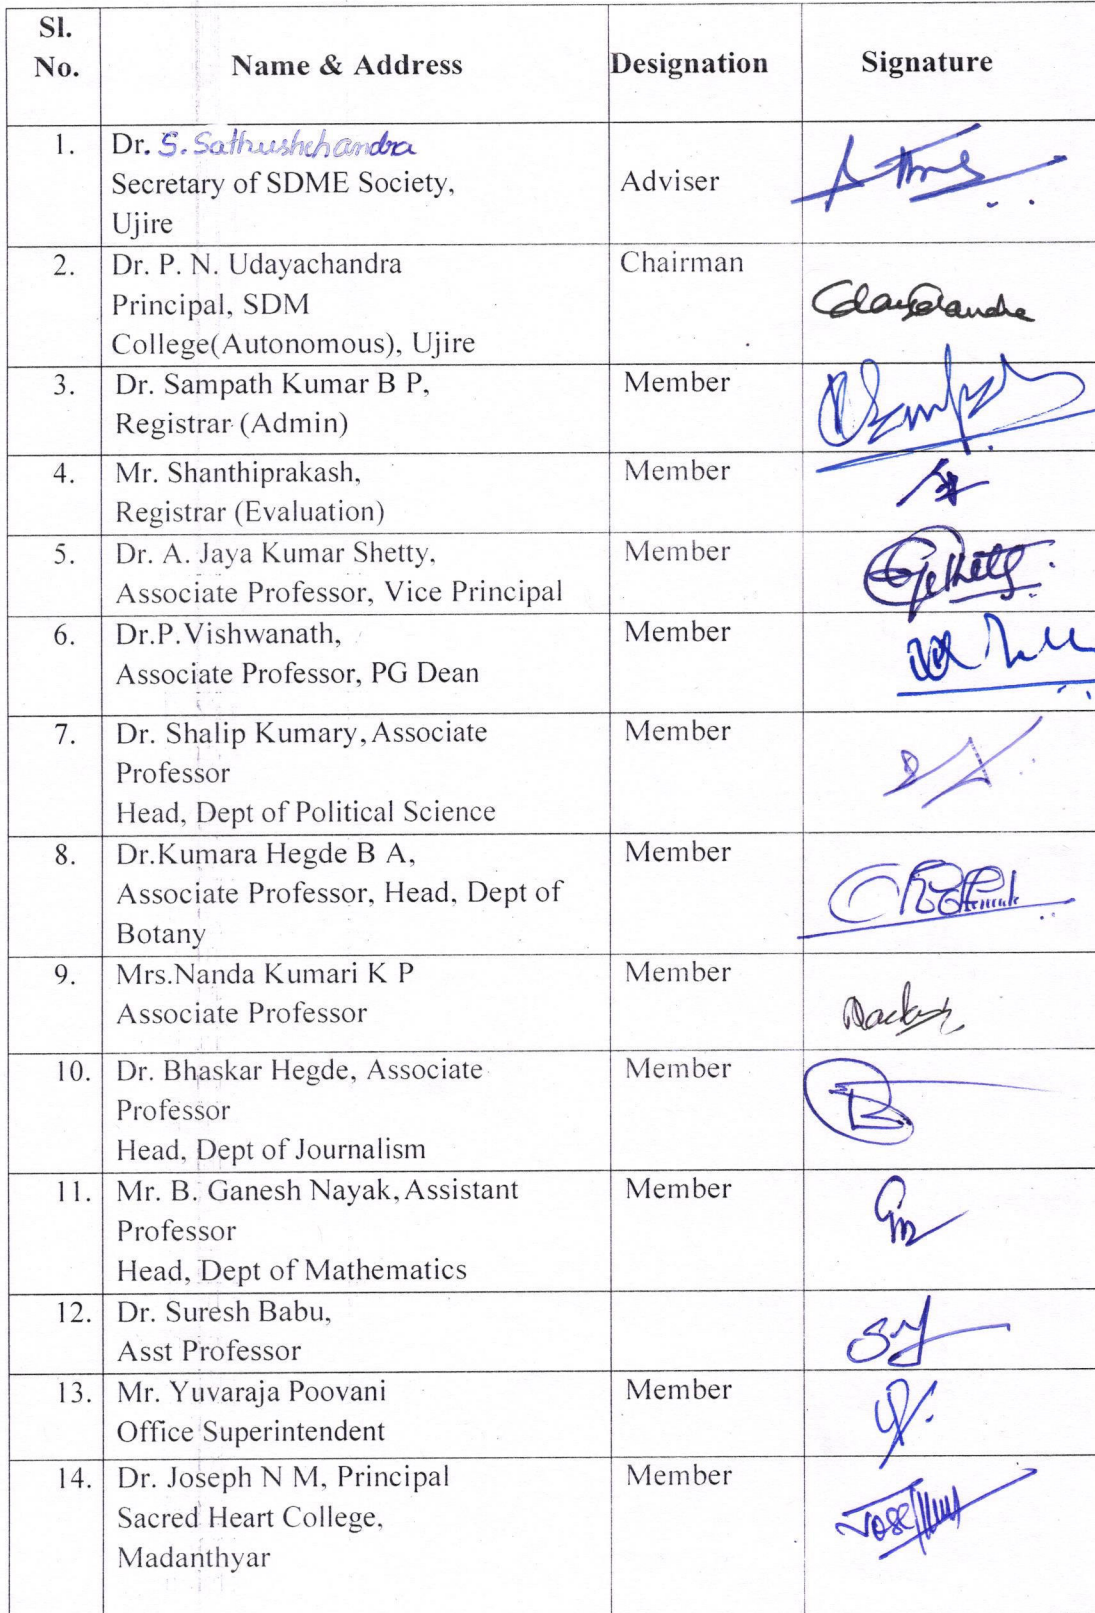 Sl.
No.
Name & Address
Designation
Signature
1.
Dr. S. Sathushchandra
Secretary of SDME Society,
Ujire
Adviser
2.
Dr. P. N. Udayachandra
Principal, SDM
College(Autonomous), Ujire
Chairman
3.
Dr. Sampath Kumar B P,
Registrar (Admin)
Member
4.
Mr. Shanthiprakash,
Registrar (Evaluation)
Member
5.
Dr. A. Jaya Kumar Shetty,
Associate Professor, Vice Principal
Member
6.
Dr.P.Vishwanath,
Associate Professor, PG Dean
Member
7.
Dr. Shalip Kumary, Associate
Professor
Head, Dept of Political Science
Member
8.
Dr.Kumara Hegde B A,
Associate Professor, Head, Dept of
Botany
Member
9.
Mrs.Nanda Kumari K P
Associate Professor
Member
10.
Dr. Bhaskar Hegde, Associate
Professor
Head, Dept of Journalism
Member
11.
Mr. B. Ganesh Nayak, Assistant
Professor
Head, Dept of Mathematics
Member
12.
Dr. Suresh Babu,
Asst Professor
13.
Mr. Yuvaraja Poovani
Office Superintendent
Member
14.
Dr. Joseph N M, Principal
Sacred Heart College,
Madanthyar
Member